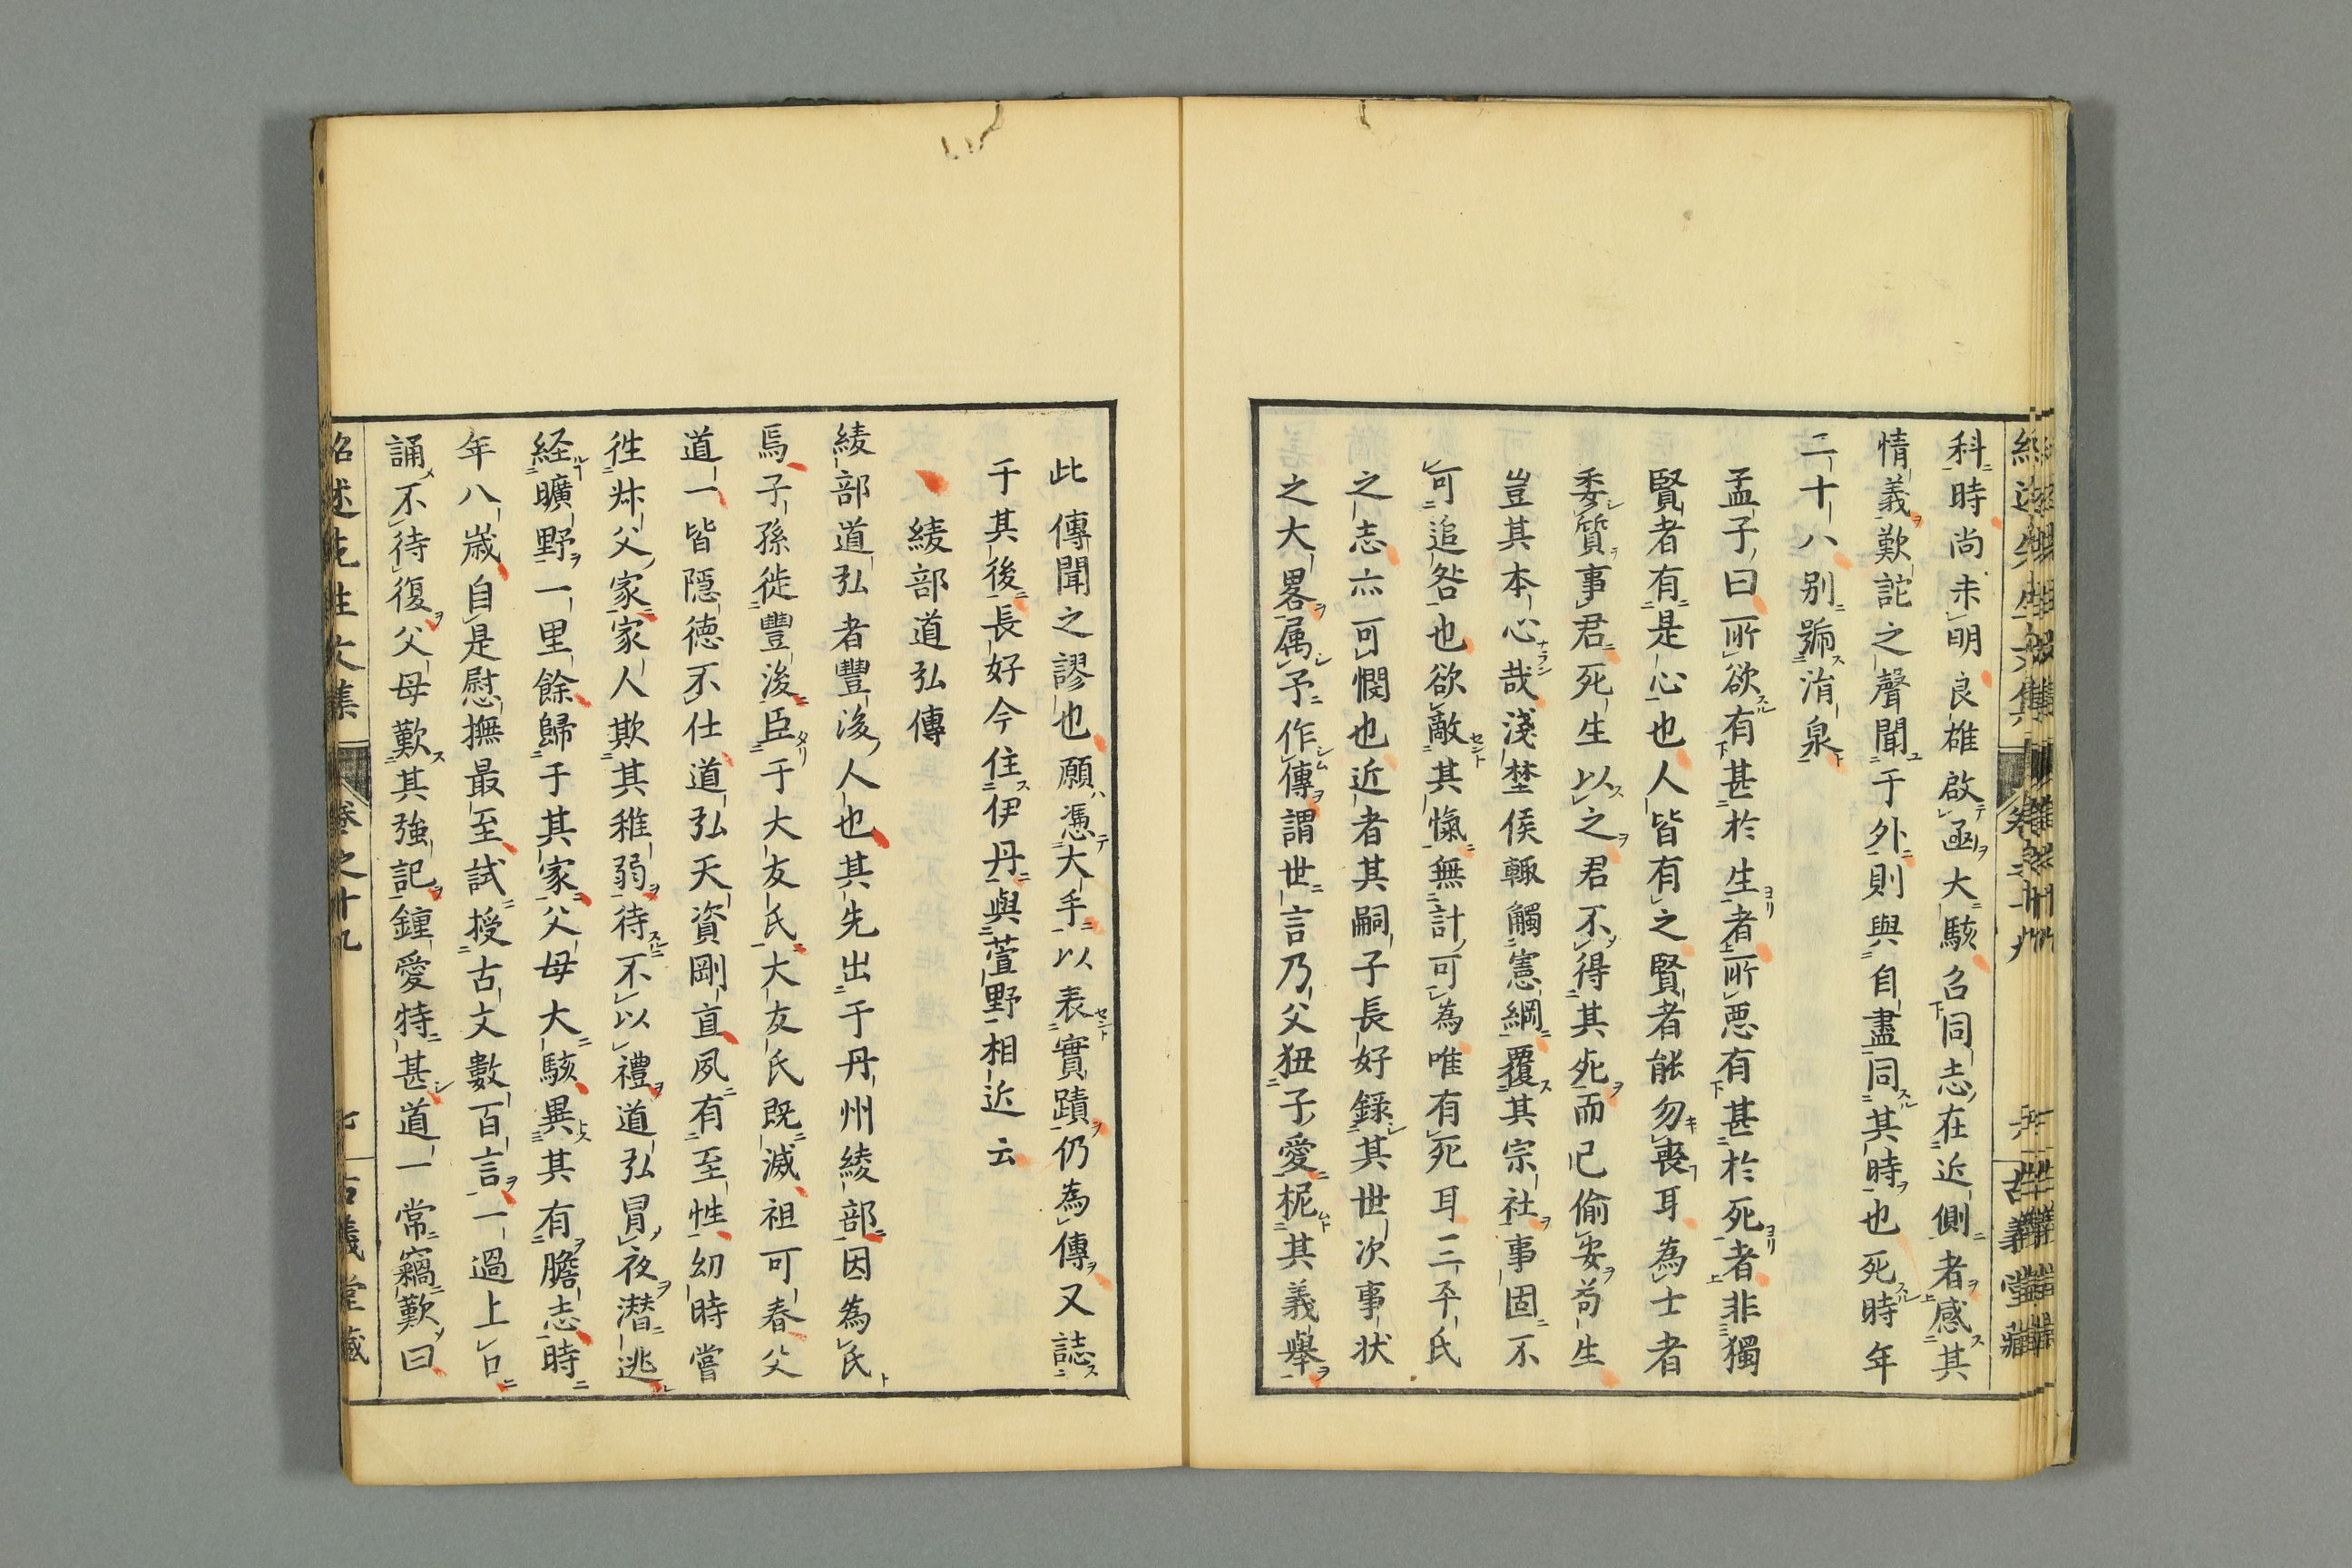 科時尚未明良雄啟函大駭召同志在近側者感其
情義歎詫之聲聞于外則與自盡同其時也死時年
二十八別號涓泉
孟子曰所欲有甚於生者所悪有甚於死者非獨
賢者有是心也人皆有之賢者能勿喪耳為士者
委質事君死生以之君不得其死而已偷安苟生
豈其本心哉淺埜侯輙觸憲綱覆其宗社事固不
可追咎也欲敵其愾無計可為唯有死耳三平氏
之志亦可憫也近者其嗣子長好録其世次事状
之大畧属予作傳謂世言乃父狃子愛柅其義舉
此傳聞之謬也願憑大手以表實蹟仍為傳又誌
于其後長好今住伊丹與萱野相近云
綾部道弘傳
綾部道弘者豐後人也其先出于丹州綾部因為氏
焉子孫徙豐後臣于大友氏大友氏既滅祖可春父
道一皆隱徳不仕道弘天資剛直夙有至性幼時嘗
徃叔父家家人欺其稚弱待不以禮道弘冒夜潜逃
経曠野一里餘歸于其家父母大駭異其有膽志時
年八歳自是慰撫最至試授古文數百言一過上口
誦不待復父母歎其強記鍾愛特甚道一常竊歎曰
紹述先生文集
卷之十九
古義堂藏